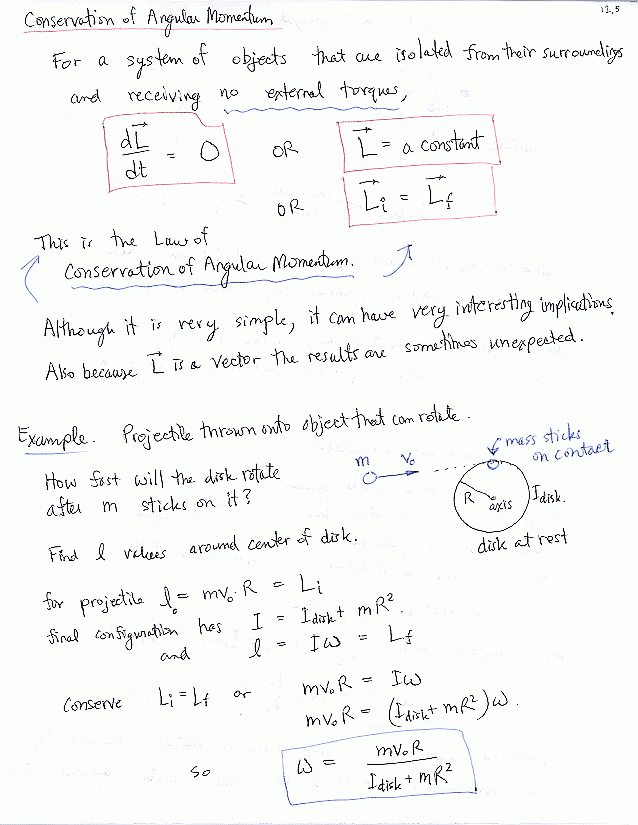 12.5
Conservation of Angular Momentum
For a system of objects that are isolated from their surroundings
and receiving no external torques,
dL⃗/dt = 0 OR L⃗ = a constant
OR L⃗i = L⃗f
This is the Law of
Conservation of Angular Momentum.
Although it is very simple, it can have very interesting implications.
Also because L⃗ is a vector the results are sometimes unexpected.
Example. Projectile thrown onto object that can rotate.
How fast will the disk rotate
after m sticks on it?
m v₀
mass sticks
on contact
R axis Idisk.
disk at rest
Find l values around center of disk.
for projectile l₀ = mv₀R = Li
final configuration has I = Idisk + mR².
and l = Iω = Lf
Conserve Li = Lf or mv₀R = Iω
mv₀R = (Idisk + mR²)ω.
so ω = mv₀R / Idisk + mR²